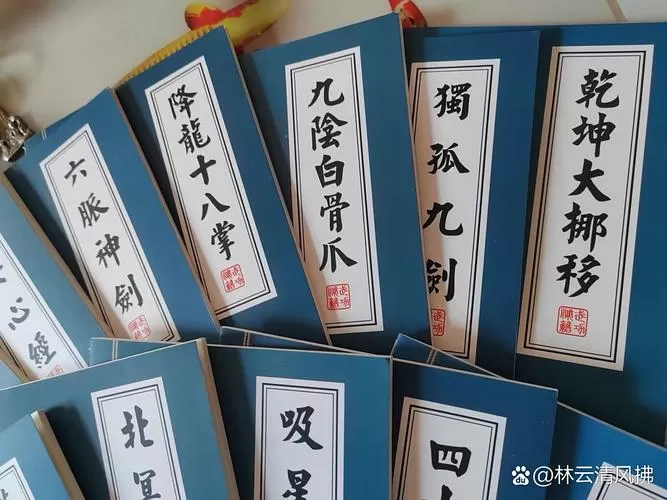 六脈神劍
降龍十八掌
九陰白骨爪
獨孤九劍
乾坤大挪移
心經
北冥
吸星
四十
@林云清风拂